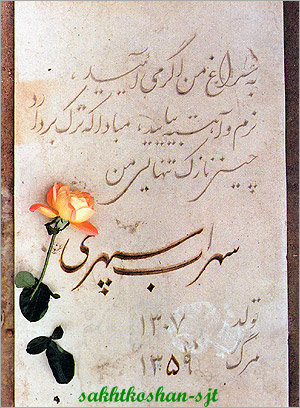 به سراغ من اگر می آیید،
نرم و آهسته بیایید، مبادا که ترک بردارد
چینی نازک تنهایی من
سهراب سپهری
تولد ۱۳۰۷
مرگ ۱۳۵۹
sakhtkoshan-sjt